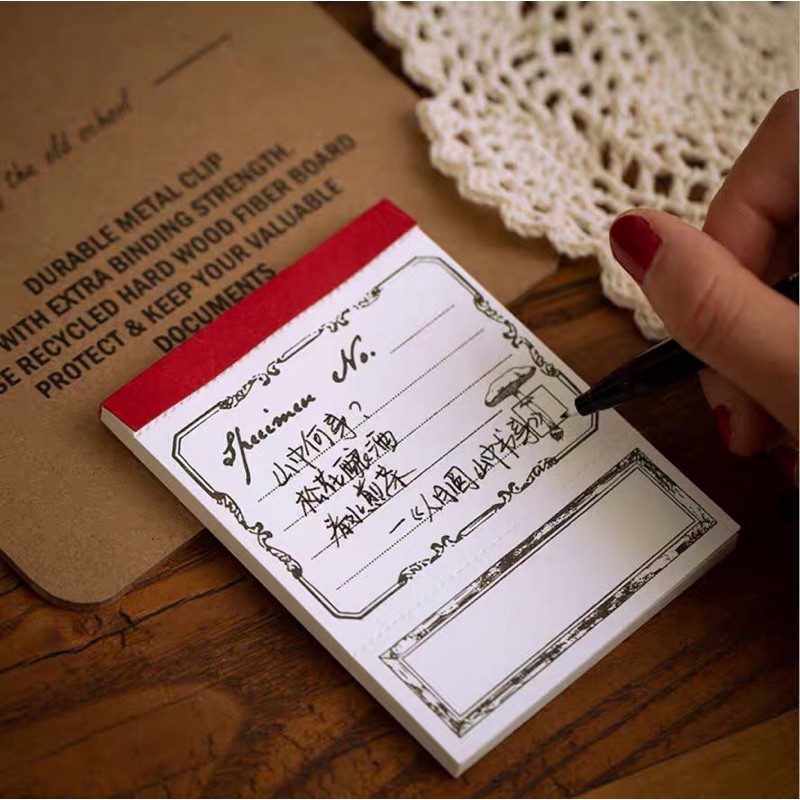 the old school
DURABLE METAL CLIP
WITH EXTRA BINDING STRENGTH.
RECYCLED HARD WOOD FIBER BOARD
PROTECT & KEEP YOUR VALUABLE
DOCUMENTS
Specimen No.
山中何事?
松花酿酒
春水煎茶
—《人月圆 山中书事》